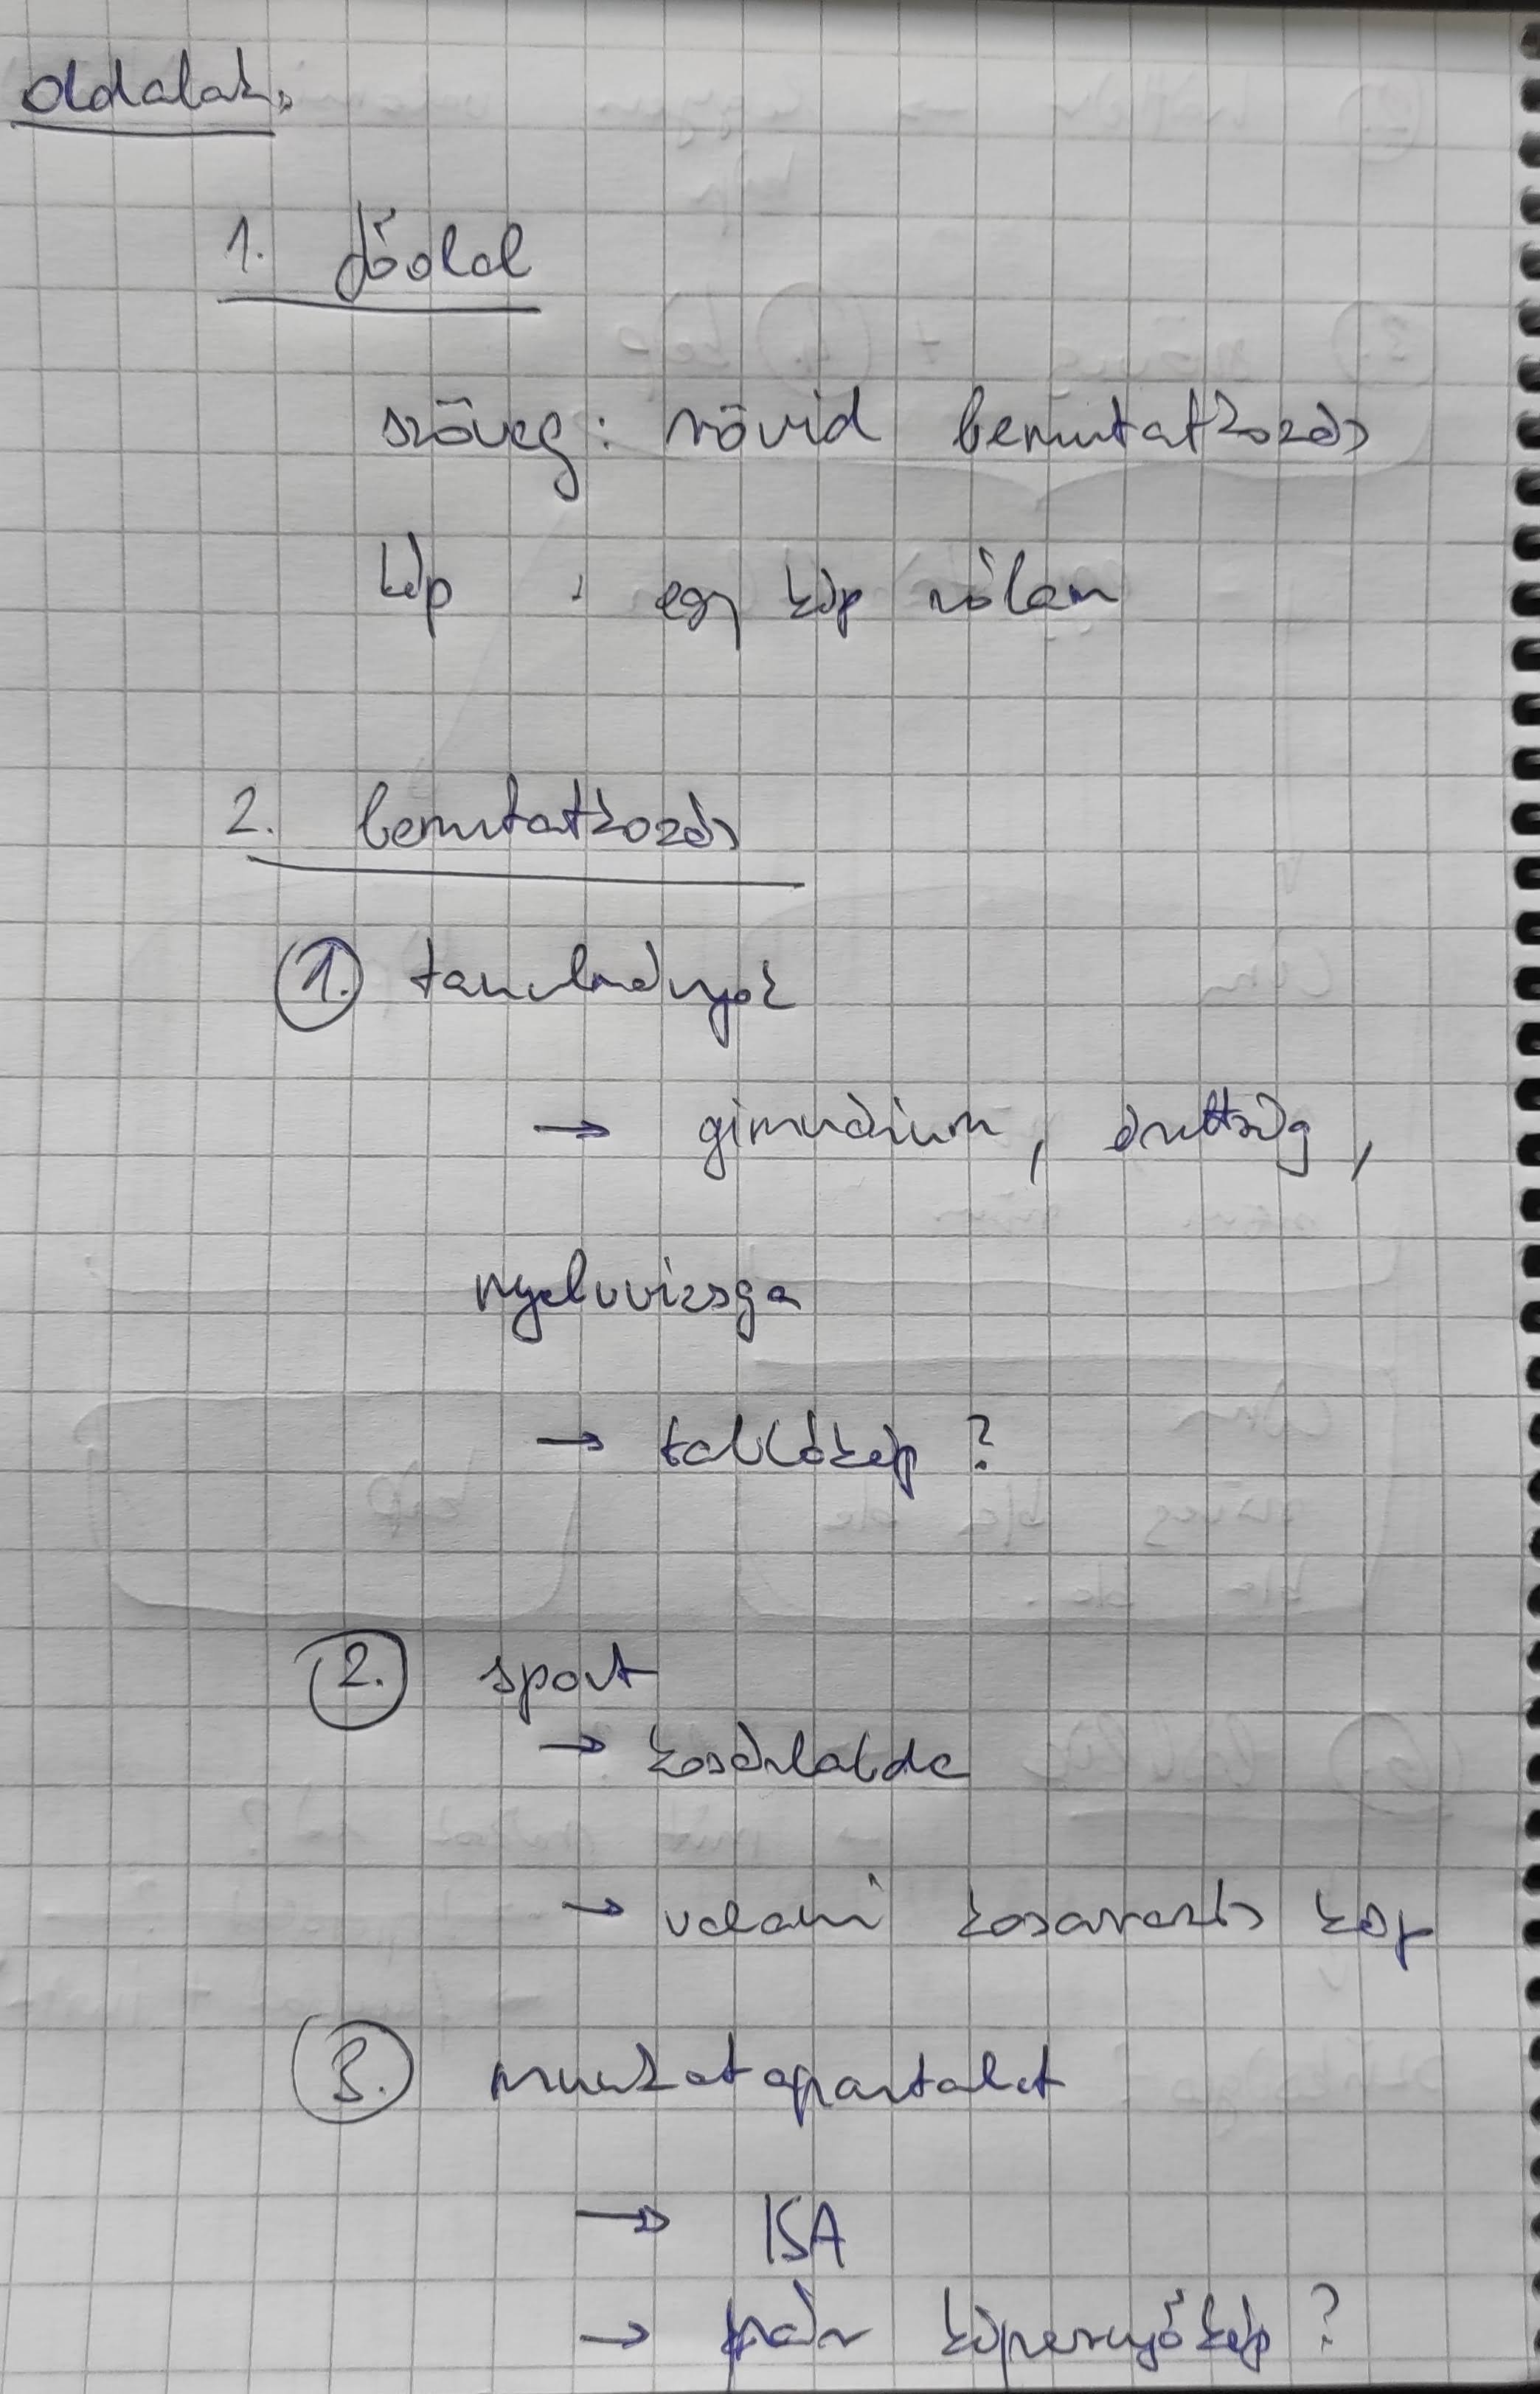 oldalak:
1. főoldal
szöveg: rövid bemutatkozás
kép : egy kép rólam
2. bemutatkozás
1. tanulmányok
→ gimnázium, érettség,
nyelvvizsga
→ tablókép?
2. sport
→ kosárlabda
→ valami kosarazós kép
3. munkatapasztalat
→ ISA
→ pár képernyőkép?